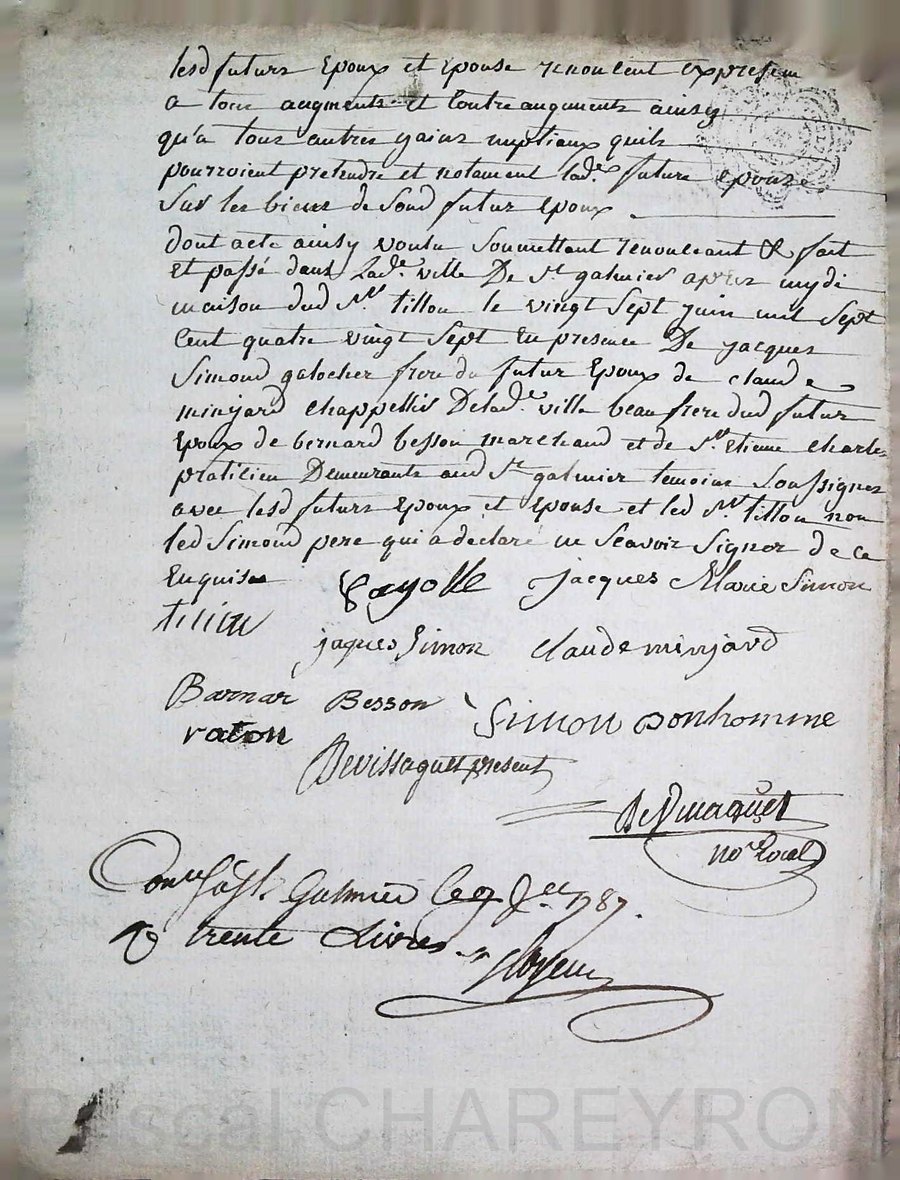 lesd futurs Epoux et Epouse renoncent expressem
a tous augments et Contre augments ainsy
qu'a tous autres gains nuptiaux quils
pourroient pretendre et notament lad.e future epouse
Sur les biens de Sond futur Epoux
dont acte ainsy voulu Soumettant renonceant & fait
Et passé dans Lad.e ville De St galmier aprez mydi
maison dud Sr tillon le vingt Sept juin mil Sept
Cent quatre vingt Sept En presence De jacques
Simond galocher frere du futur Epoux de claude
minjard chappellier Delad.e ville beau frere dud futur
Epoux de bernard besson marchand et de Sr Etienne Charles
praticien Demeurants aud St galmier temoins Soussignez
avec lesd futurs Epoux et Epouse et led Sr tillon non
led Simond pere qui a declaré ne Scavoir Signer de ce
Enquis
fayolle jacques Marie Simon
jaques Simon claude minjard
Barnar Besson Simon Bonhomme
raton
Devissaguet present
DeVissaguet
no.re Royal
Con.lé à St Galmier Le 9 J.et 1787.
R trente Livres